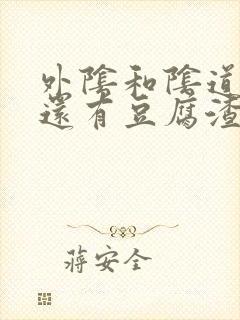 外陰和陰道
還有豆腐渣
蔣安全